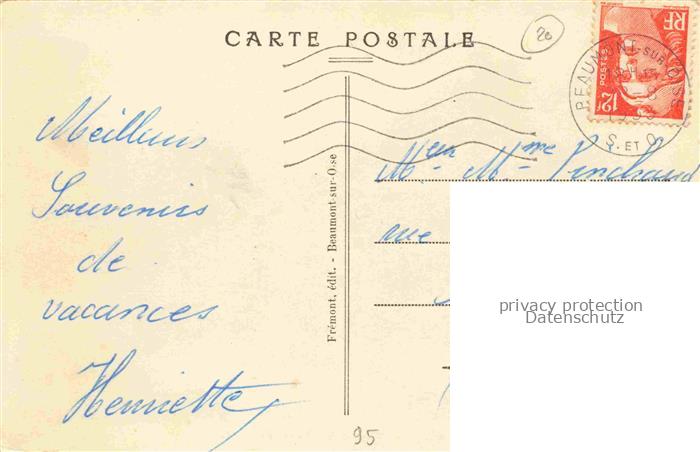 CARTE POSTALE
20
RF
POSTES
12F
BEAUMONT-SUR-OISE
S. ET O.
Meilleurs
Souvenirs
de
vacances
Henriette
Frémont, édit. - Beaumont-sur-Oise
Mme
rue
privacy protection
Datenschutz
95